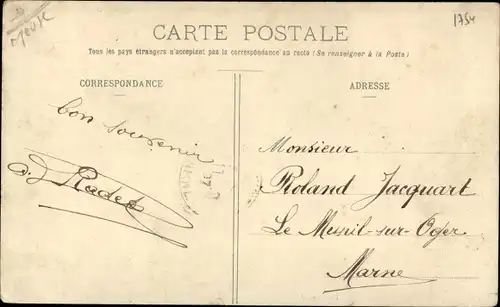 Meuse
1754
CARTE POSTALE
Tous les pays étrangers n'acceptent pas la correspondance au recto (Se renseigner à la Poste)
CORRESPONDANCE
bon souvenir
ADRESSE
Monsieur
Roland Jacquart
Le Mesnil-sur-Oger
Marne